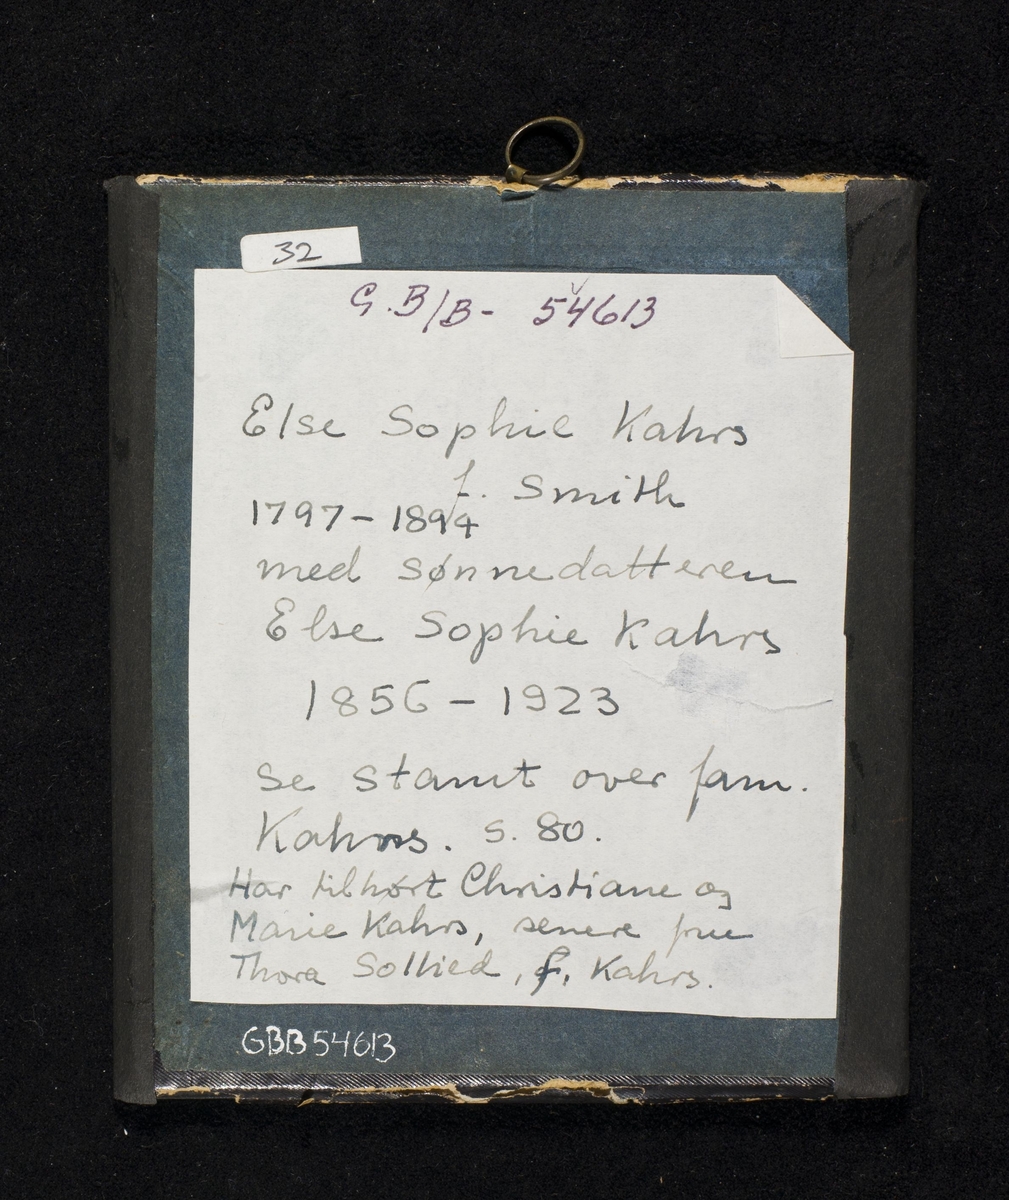 32
G.B/B- 54613
Else Sophie Kahrs
f. Smith
1797-1894
med sønnedatteren
Else Sophie Kahrs
1856 - 1923
se stamt over fam.
Kahrs. s. 80.
Har tilhørt Christiane og
Marie Kahrs, senere frue
Thora Sollied, f. Kahrs.
GBB54613